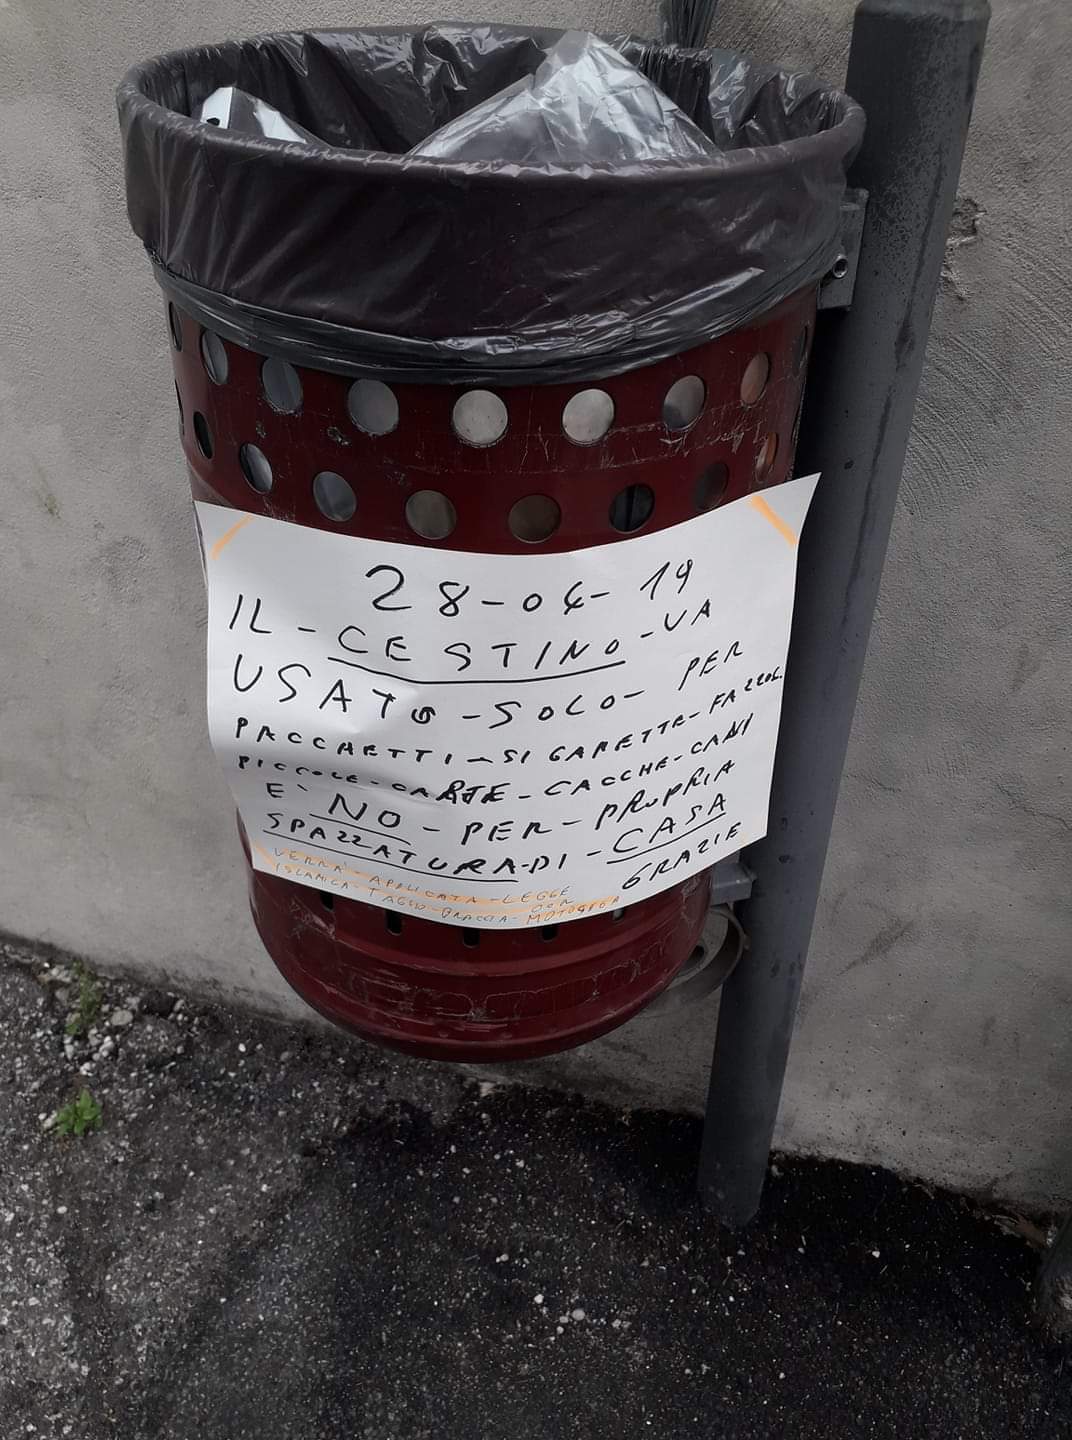 28-04-19
IL-CESTINO-VA
USATO-SOLO-PER
PACCHETTI-SIGARETTE-FAZZOL.
PICCOLE-CARTE-CACCHE-CANI
E' NO-PER-PROPRIA
SPAZZATURA-DI-CASA
GRAZIE
VERRÀ-APPLICATA-LEGGE
ISLAMICA-TAGLIO-BRACCIA-CON MOTOSEGA